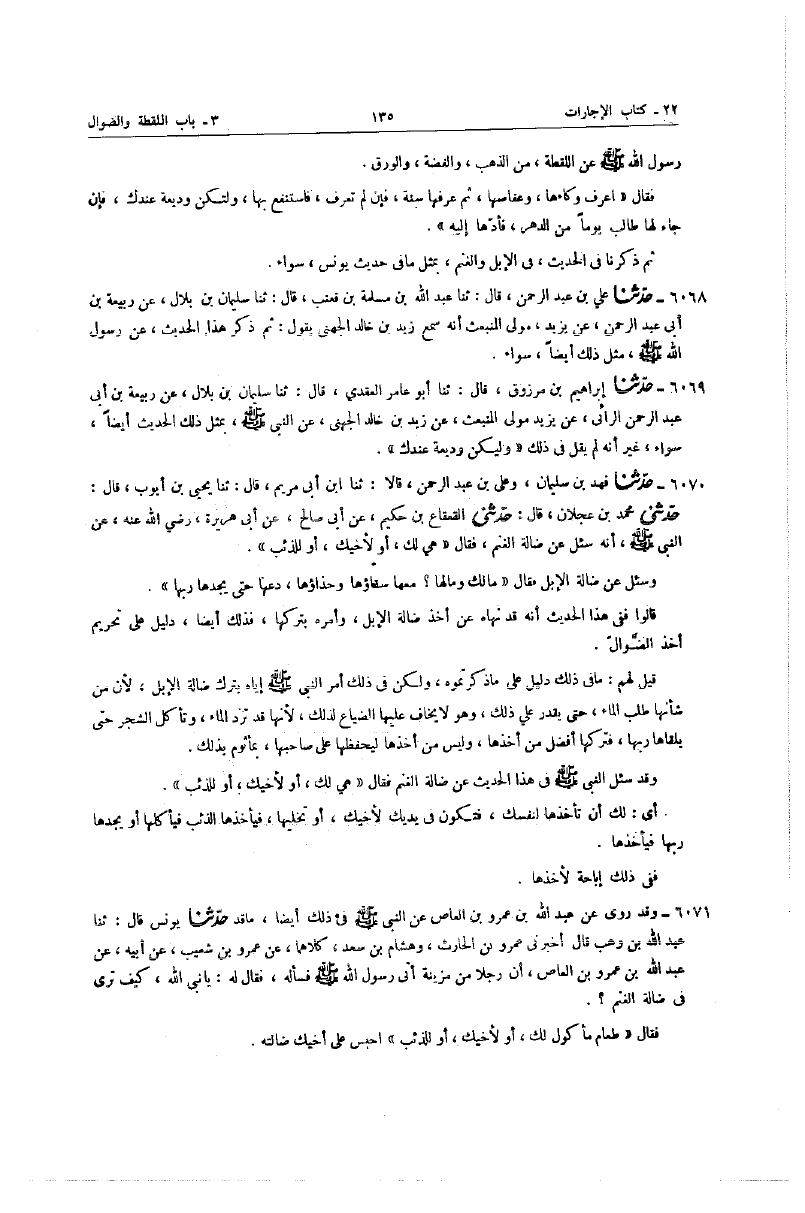 ٢٢ ـ كتاب الإجارات ١٣٥ ٣ ـ باب اللقطة والضوال
رسول الله ﷺ عن اللقطة ، من الذهب ، والفضة ، والورق .
فقال « اعرف وكاءها ، وعفاصها ، ثم عرفها سنة ، فإن لم تعرف ، فاستنفع بها ، ولتكن وديعة عندك ، فإن
جاء لها طالب يوماً من الدهر ، فأدّها إليه » .
ثم ذكرنا فى الحديث ، فى الإبل والغنم ، بمثل مافى حديث يونس ، سواء .
٦٠٦٨ ـ حدّثنا علي بن عبد الرحمن ، قال : ثنا عبد الله بن مسلمة بن قعنب ، قال : ثنا سليمان بن بلال ، عن ربيعة بن
أبى عبد الرحمن ، عن يزيد ، مولى المنبعث أنه سمع زيد بن خالد الجهنى يقول : ثم ذكر هذا الحديث ، عن رسول
الله ﷺ ، مثل ذلك أيضاً ، سواء .
٦٠٦٩ ـ حدّثنا إبراهيم بن مرزوق ، قال : ثنا أبو عامر العقدي ، قال : ثنا سليمان بن بلال ، عن ربيعة بن أبى
عبد الرحمن الرائى ، عن يزيد مولى المنبعث ، عن زيد بن خالد الجهنى ، عن النبى ﷺ ، بمثل ذلك الحديث أيضاً ،
سواء ، غير أنه لم يقل فى ذلك « وليكن وديعة عندك » .
٦٠٧٠ ـ حدّثنا فهد بن سليمان ، وعلى بن عبد الرحمن ، قالا : ثنا ابن أبى مريم ، قال : ثنا يحيى بن أيوب ، قال :
حدّثنى محمد بن عجلان ، قال : حدّثنى القعقاع بن حكيم ، عن أبى صالح ، عن أبى هريرة ، رضي الله عنه ، عن
النبى ﷺ ، أنه سئل عن ضالة الغنم ، فقال « هي لك ، أو لأخيك ، أو للذئب » .
وسئل عن ضالة الإبل فقال « مالك ومالها ؟ معها سقاؤها وحذاؤها ، دعها حتى يجدها ربها » .
قالوا ففى هذا الحديث أنه قد نهاه عن أخذ ضالة الإبل ، وأمره بتركها ، فذلك أيضا ، دليل على تحريم
أخذ الضَّوالّ .
قيل لهم : مافى ذلك دليل على ماذكرتموه ، ولكن فى ذلك أمر النبى ﷺ إياه بترك ضالة الإبل ، لأن من
شأنها طلب الماء ، حتى يقدر علي ذلك ، وهو لايخاف عليها الضياع لذلك ، لأنها قد ترد الماء ، وتأكل الشجر حتى
يلقاها ربها ، فتركها أفضل من أخذها ، وليس من أخذها ليحفظها على صاحبها ، بمأثوم بذلك .
وقد سئل النبى ﷺ فى هذا الحديث عن ضالة الغنم فقال « هي لك ، أو لأخيك ، أو للذئب » .
أى : لك أن تأخذها لنفسك ، فتكون فى يديك لأخيك ، أو تخليها ، فيأخذها الذئب فيأكلها أو يجدها
ربها فيأخذها .
ففى ذلك إباحة لأخذها .
٦٠٧١ ـ وقد روى عن عبد الله بن عمرو بن العاص عن النبى ﷺ فى ذلك أيضا ، ماقد حدّثنا يونس قال : ثنا
عبد الله بن وهب قال أخبرنى عمرو بن الحارث ، وهشام بن سعد ، كلاهما ، عن عمرو بن شعيب ، عن أبيه ، عن
عبد الله بن عمرو بن العاص ، أن رجلا من مزينة أتى رسول الله ﷺ فسأله ، فقال له : يانبى الله ، كيف ترى
فى ضالة الغنم ؟ .
فقال « طعام مأكول لك ، أو لأخيك ، أو للذئب » احبس على أخيك ضالته .